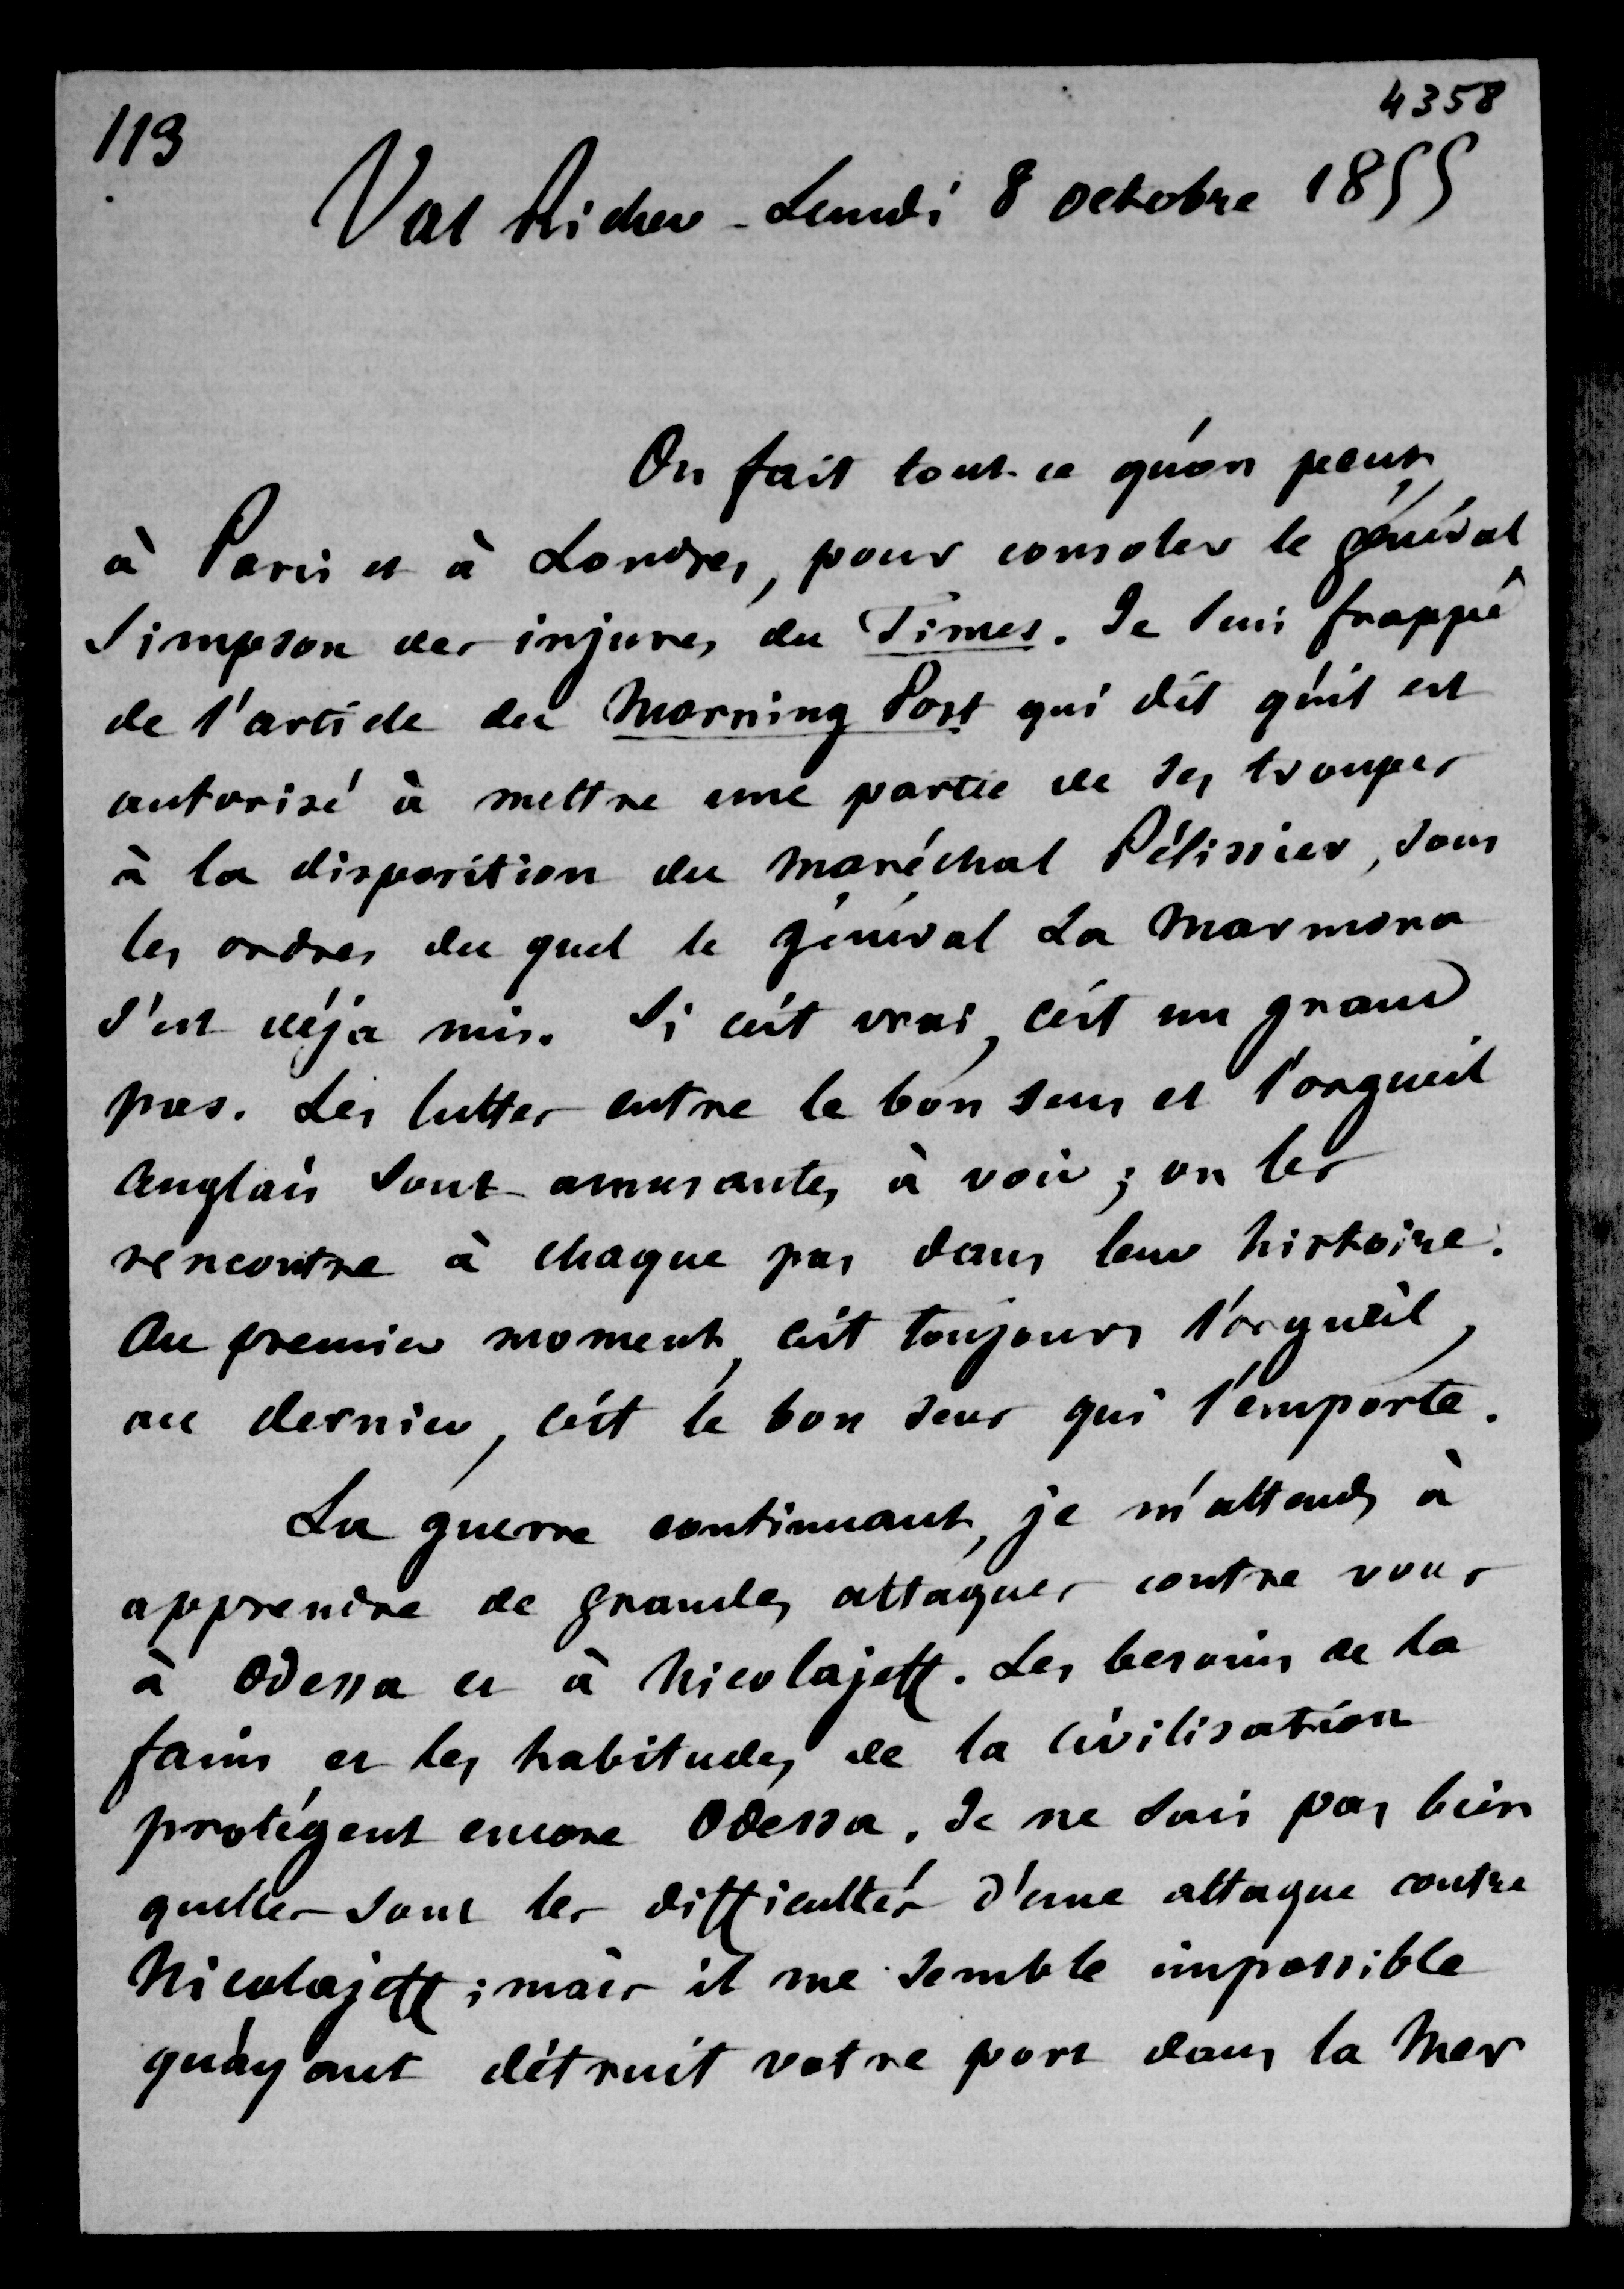 4358
113
Val Richer - Lundi 8 octobre 1855
On fait tout ce qu'on peut,
à Paris et à Londres, pour consoler le général
Simpson des injures du Times. Je suis frappé
de l'article du Morning Post qui dit qu'il est
autorisé à mettre une partie de ses troupes
à la disposition du Maréchal Pélissier, sous
les ordres du quel le général La Marmora
s'est déja mis. Si c'est vrai, c'est un grand
pas. Les luttes entre le bon sens et l'orgueil
Anglais sont amusantes à voir ; on les
rencontre à chaque pas dans leur histoire.
Au premier moment, c'est toujours l'orgueil,
au dernier, c'est le bon sens qui l'emporte.
La guerre continuant, je m'attends à
apprendre de grandes attaques contre vous
à Odessa et à Nicolajeff. Les besoins de la
faim et les habitudes de la civilisation
protégent encore Odessa. Je ne sais pas bien
quelles sont les difficultés d'une attaque contre
Nicolajeff ; mais il me semble impossible
qu'ayant détruit votre port dans la Mer